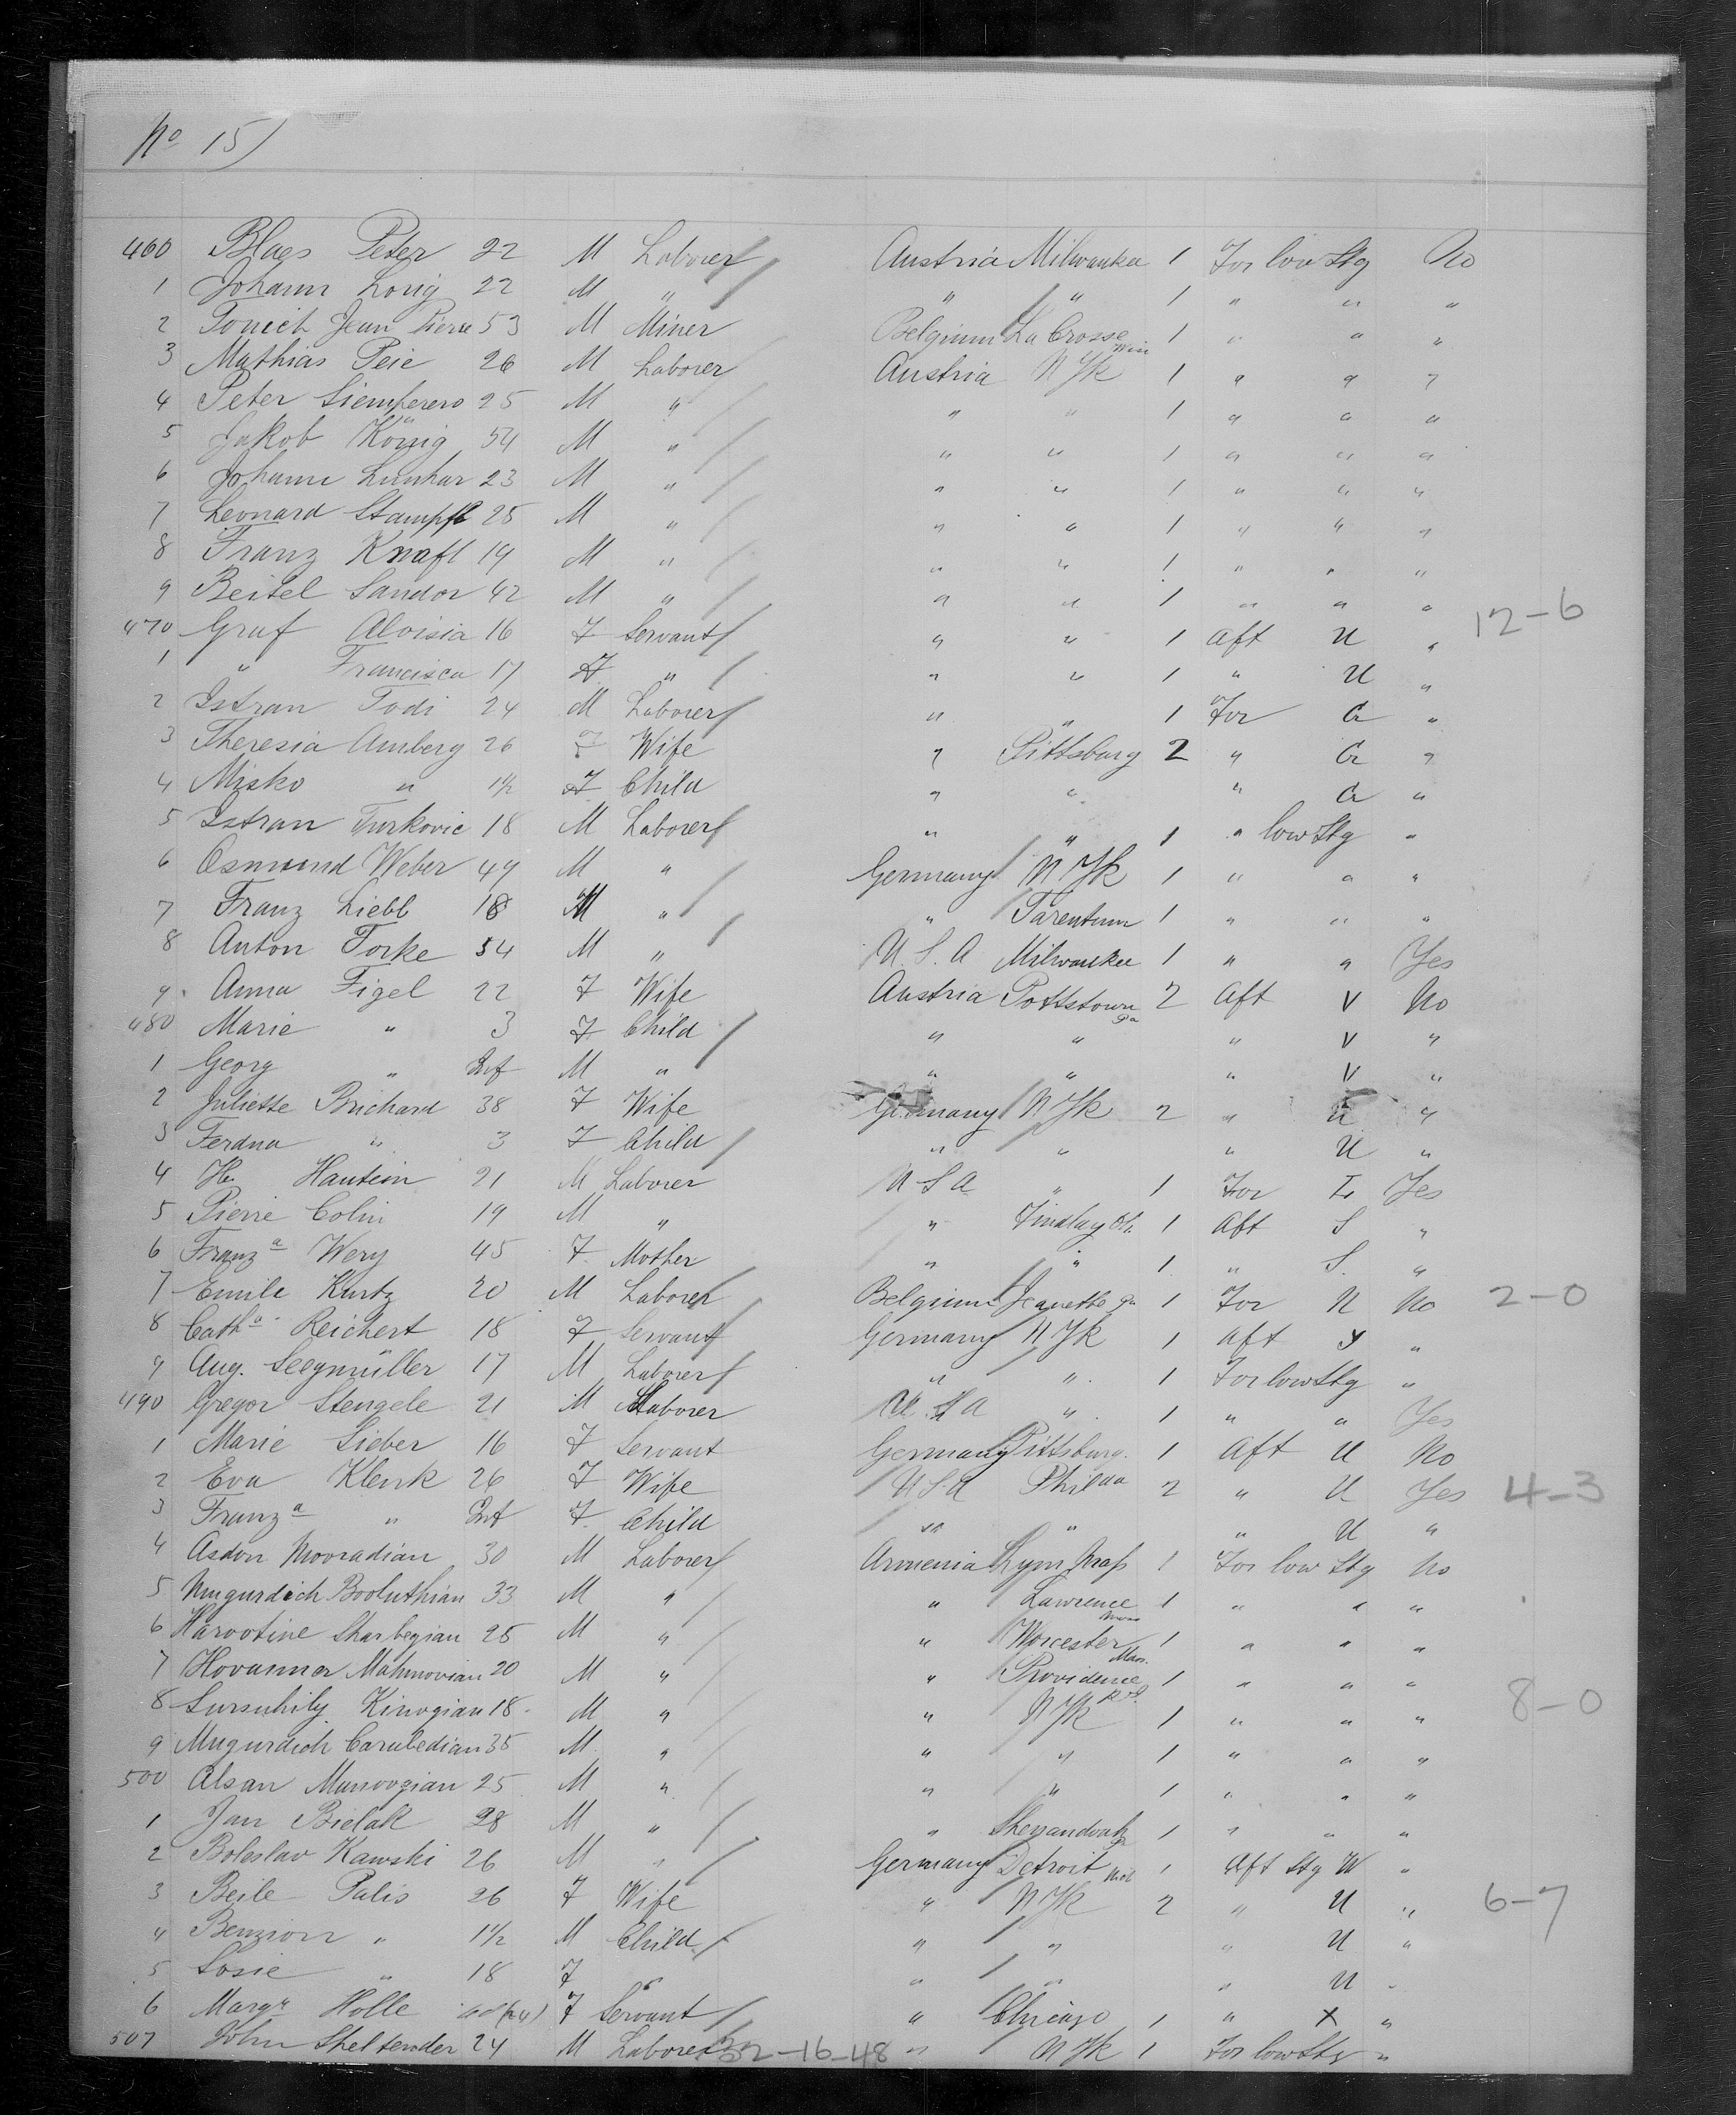 No 15)
460 Blaes Peter 22 M Laborer Austria Milwaukee 1 For low Stg No
1 Johann Lonig 22 M " " " 1 " " "
2 Tonich Jean Piere 53 M Miner Belgium La Crosse Win 1 " " "
3 Mathias Peie 26 M Laborer Austria N Yk 1 " " "
4 Peter 25 M " " " 1 " " "
5 Jakob König 54 M " " " 1 " " "
6 Johann 23 M " " " 1 " " "
7 Leonard Stampfl 25 M " " " 1 " " "
8 Franz Knafl 19 M " " " 1 " " "
9 Beitel Sandor 42 M " " " 1 " " "
470 Graf Aloisia 16 F Servant " " 1 Aft U " 12-6
1 " Francisca 17 F " " " 1 " U "
2 Istran Todi 24 M Laborer " " 1 For G "
3 Theresia Amberg 26 F Wife " Pittsburg 2 " G "
4 Misko " 1½ F Child " " " G "
5 Istran Turkovic 18 M Laborer " " 1 " low Stg "
6 Osmund Weber 49 M " Germany N Yk 1 " " "
7 Franz Liebl 18 M " " Tarentum 1 " " "
8 Anton Torke 54 M " U.S.A Milwaukee 1 " " Yes
9 Anna Figel 22 F Wife Austria Pottstown Pa 2 Aft V No
480 Marie " 3 F Child " " " V "
1 Georg " Inf M " " " " V "
2 Juliette Brichard 38 F Wife Germany N Yk 2 " U "
3 Ferdna " 3 F Child " " " U "
4 Hautein 21 M Laborer U S A " 1 For Yes
5 Pierre Colin 19 M " " Findlay Oh. 1 Aft S "
6 Franza Wery 45 F Mother " " 1 " S. "
7 Emile Kurtz 20 M Laborer Belgium Jeanette Pa 1 For N No 2-0
8 Catha Reichert 18 F Servant Germany N Yk 1 Aft Y "
9 Aug. Seegmüller 17 M Laborer " " 1 For low Stg "
490 Gregor Stengele 21 M Laborer U.S A " 1 " " Yes
1 Marie Sieber 16 F Servant Germany Pittsburg. 1 Aft U No
2 Eva Klenk 26 F Wife U S A Philda 2 " U Yes 4-3
3 Franza " Inf F Child " " " U "
4 Asdon Mooradian 30 M Laborer Armenia Lynn Mass 1 For low Stg No
5 Mugurdich Booluthian 33 M " " Lawrence Mass 1 " " "
6 Harootine Sharbegian 25 M " " Worcester Mass. 1 " " "
7 Hovannes Mahmovian 20 M " " Providence R.I. 1 " " "
8 Kinogian 18 M " " N Yk 1 " " " 8-0
9 Mugurdich Carubedian 35 M " " " 1 " " "
500 Alsan Manoogian 25 M " " " 1 " " "
1 Jan Bielak 28 M " " Shenandoah Pa 1 " " "
2 Boleslav Kawski 26 M " Germany Detroit Mich 1 Aft Stg W "
3 Beile Palis 26 F Wife " N Yk 2 " U " 6-7
4 Benzion " 1½ M Child " " " U "
5 Sosie " 18 F " " " " U "
6 Margr Holle F Servant " Chicago 1 " X "
507 John Sheltender 24 M Laborer 32-16-48 " N Yk 1 For low Stg "